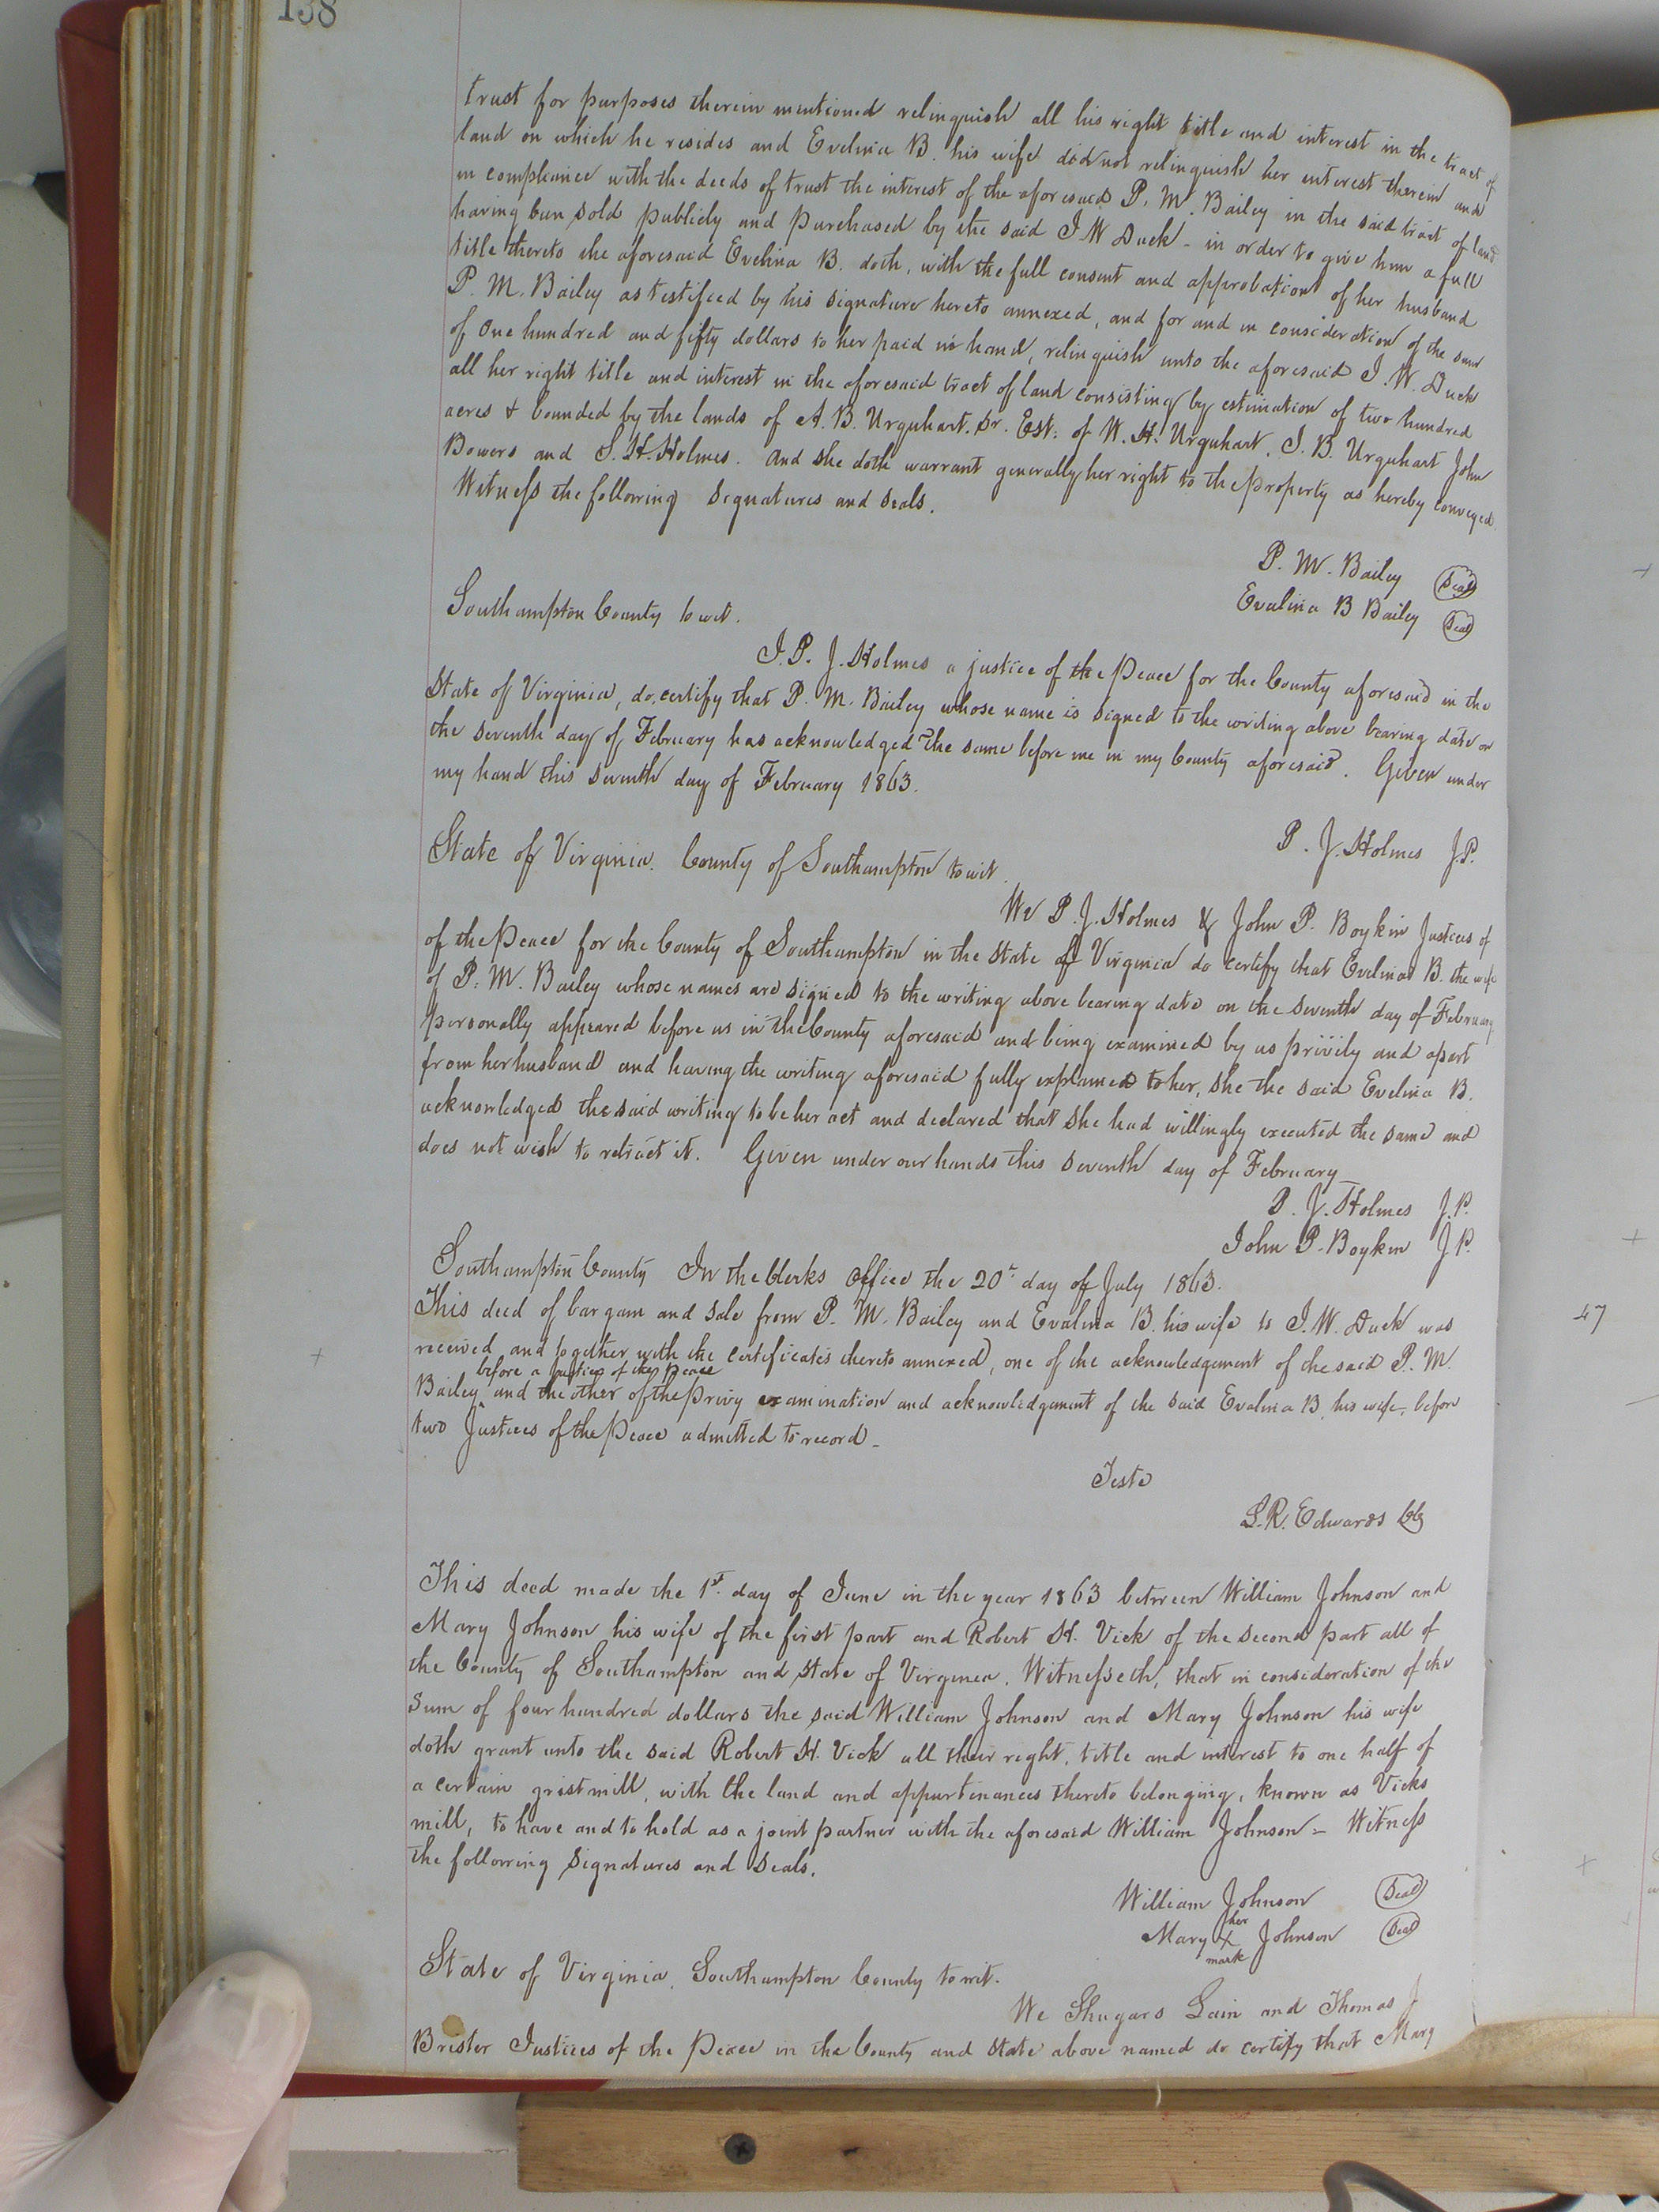 138
trust for purposes therein mentioned relinquish all his right title and interest in the tract of
land on which he resides and Evelina B. his wife did not relinquish her interest therein and
in compliance with the deeds of trust the interest of the aforesaid P. M. Bailey in the said tract of land
having been sold publicly and purchased by the said J W Duck - in order to give him a full
title thereto the aforesaid Evelina B. doth, with the full consent and approbation of her husband
P. M. Bailey as testified by his signature hereto annexed, and for and in consideration of the sum
of One hundred and fifty dollars to her paid in hand, relinquish unto the aforesaid J. W. Duck
all her right title and interest in the aforesaid tract of land consisting by estimation of two hundred
acres & bounded by the lands of A. B. Urquhart. Sr. Est: of W. H. Urquhart, J. B. Urquhart John
Bowers and S. H. Holmes. And she doth warrant generally her right to the property as hereby conveyed.
Witness the following signatures and seals.
P. M. Bailey Seal
Evalina B Bailey Seal
Southampton County to wit.
I. P. J. Holmes a justice of the Peace for the County aforesaid in the
State of Virginia, do, certify that P. M. Bailey whose name is signed to the writing above bearing date on
the seventh day of February has acknowledged the same before me in my County aforesaid. Given under
my hand this seventh day of February 1863.
P. J. Holmes J.P.
State of Virginia. County of Southampton to wit.
We P. J. Holmes & John P. Boykin Justices of
of the Peace for the County of Southampton in the State of Virginia do certify that Evelina B. the wife
of P. M. Bailey whose names are signed to the writing above bearing date on the seventh day of February
personally appeared before us in the County aforesaid and being examined by us privily and apart
from her husband and having the writing aforesaid fully explained to her, she the said Evelina B.
acknowledged the said writing to be her act and declared that she had willingly executed the same and
does not wish to retract it. Given under our hands this seventh day of February
P. J. Holmes J.P.
John P. Boykin J.P.
Southampton County In the Clerks Office the 20th day of July 1863.
This deed of bargain and sale from P. M. Bailey and Evalina B. his wife to J. W. Duck was
received and together with the certificates thereto annexed, one of the acknowledgement of the said P. M.
before a justice of the Peace
Bailey and the other of the Privy examination and acknowledgment of the said Evalina B. his wife, before
two Justices of the Peace admitted to record -
Teste
L. R. Edwards Clk
This deed made the 1st. day of June in the year 1863 between William Johnson and
Mary Johnson his wife of the first part and Robert H. Vick of the second part all of
the County of Southampton and State of Virginia. Witnesseth, that in consideration of the
sum of four hundred dollars the said William Johnson and Mary Johnson his wife
doth grant unto the said Robert H. Vick all their right, title and interest to one half of
a certain gristmill, with the land and appurtenances thereto belonging, known as Vicks
mill, to have and to hold as a joint partner with the aforesaid William Johnson - Witness
the following signatures and seals.
William Johnson Seal
her
Mary X Johnson Seal
mark
State of Virginia, Southampton County to wit.
We Shugars Lain and Thomas J
Brister Justices of the Peace in the County and State above named do certify that Mary
47